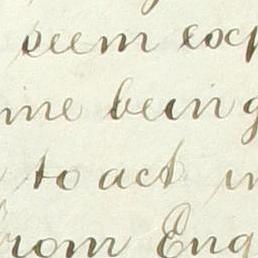 seem exp
me being
to act in
from Eng